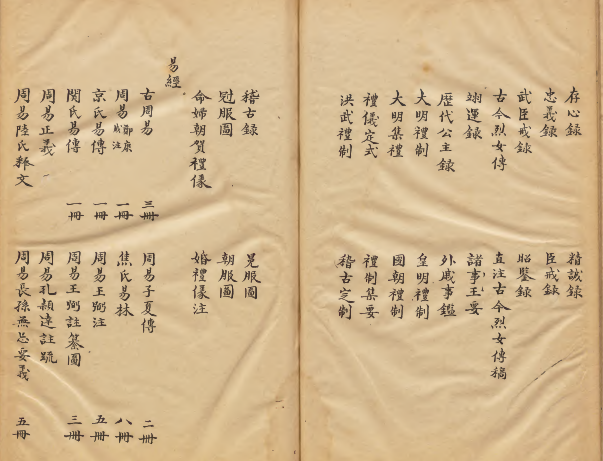 存心錄 精誠錄
忠義錄 臣戒錄
武臣戒錄 昭鑒錄
古今烈女傳 直注古今烈女傳稿
翊運錄 諸事王要
歷代公主錄 外戚事鑑
大明禮制 皇明禮制
大明集禮 國朝禮制
禮儀定式 禮制集要
洪武禮制 稽古定制
稽古錄 冕服圖
冠服圖 朝服圖
命婦朝賀禮儀 婚禮儀注
易經
古周易 三冊 周易子夏傳 二冊
周易鄭康成注 一冊 焦氏易林 八冊
京氏易傳 一冊 周易王弼注 五冊
関氏易傳 一冊 周易王弼註纂圖 三冊
周易正義 周易孔穎達註疏
周易陸氏釋文 周易長孫無忌要義 五冊